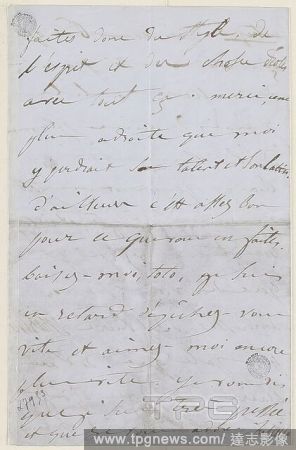 faites donc du style, de
l'esprit et des choses
avec tout ça. merci, une
plus adroite que moi
y perdrait son talent et son latin.
d'ailleurs c'est assez bon
pour ce que vous en faites.
baisez-moi, toto, je suis
en retard dépêchez-vous
vite et aimez-moi encore
plus vite.
que je suis très pressée
et que je
TPG
www.tpgnews.com / 達志影像